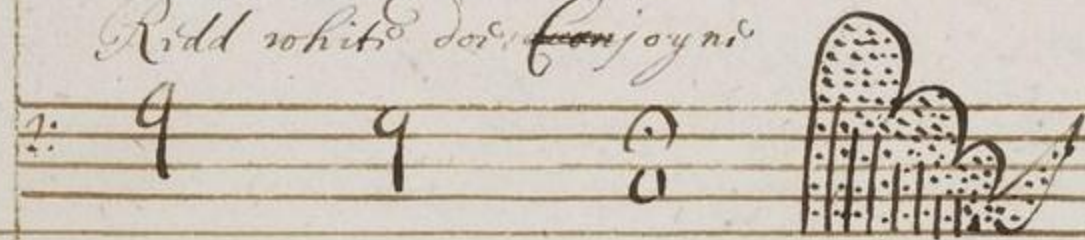 Redd white doe Conjoyne